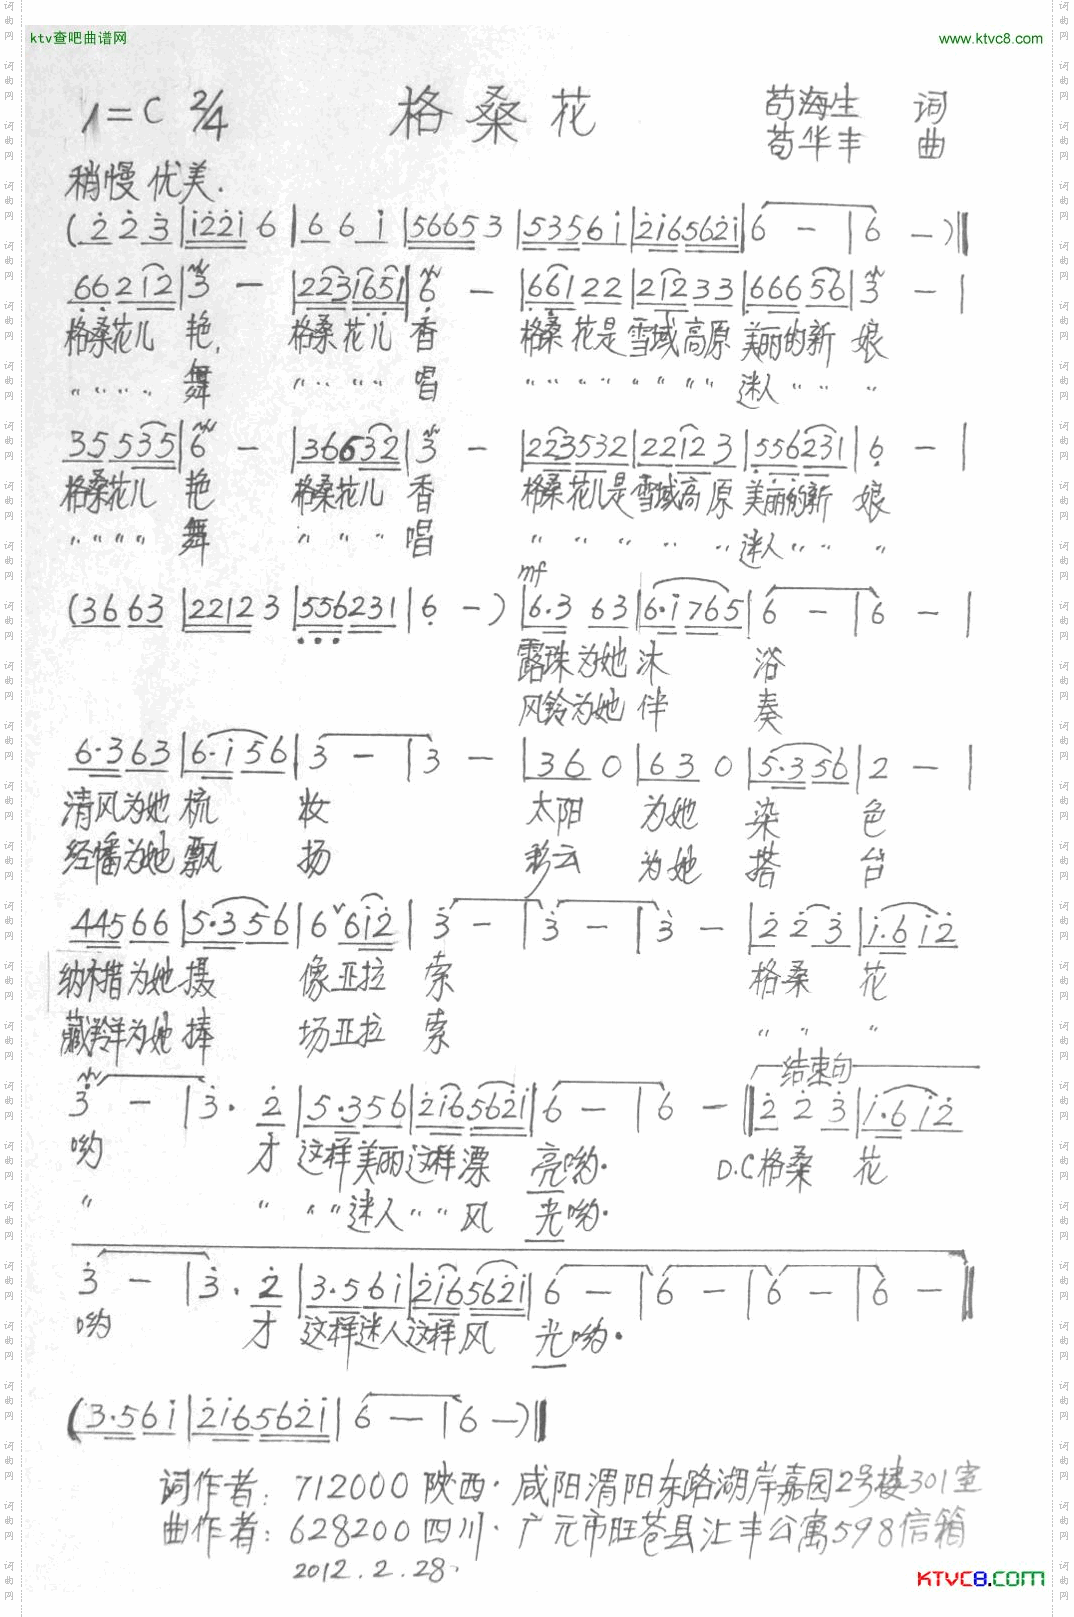 ktv查吧曲谱网 www.ktvc8.com
1=C 2/4 格桑花 苟海生 词
苟华丰 曲
稍慢 优美.
(2̇ 2̇ 3̇|1̇2̇2̇1̇ 6|6 6 1̇|56653|53561̇|2̇1̇6562̇1̇|6 -|6 -)‖
66212|3 -|2231651|6 -|66122|21233|66656|3 -|
格桑花儿 艳, 格桑花儿 香 格桑花是雪域高原 美丽的新 娘
〃〃〃〃 舞 〃〃〃〃 唱 〃〃〃〃〃〃〃〃 迷人〃〃 〃
35535|6 -|36632|3 -|223532|22123|556231|6 -|
格桑花儿 艳 格桑花儿 香 格桑花儿是雪域高原 美丽的新 娘
〃〃〃〃 舞 〃〃〃 唱 〃〃〃〃〃 迷人〃〃 〃
mf
(3663|22123|556231|6 -)|6·3 63|6·1̇765|6 -|6 -|
露珠为她沐 浴
风铃为她伴 奏
6·363|6·1̇56|3 -|3 -|360|630|5·356|2 -|
清风为她梳 妆 太阳 为她 染 色
经幡为她飘 扬 彩云 为她 搭 台
44566|5·356|6ˇ61̇2̇|3̇ -|3̇ -|3̇ -|2̇ 2̇ 3̇|1̇·61̇2̇
纳木措为她摄 像亚拉 索 格桑 花
藏羚羊为她捧 场亚拉 索 〃 〃 〃
结束句
3̇ -|3̇· 2̇|5·356|2̇1̇6562̇1̇|6 -|6 -‖2̇ 2̇ 3̇|1̇·61̇2̇
呦 才 这样美丽这样漂 亮呦. D.C格桑 花
〃 〃 〃〃迷人〃〃风 光呦.
3̇ -|3̇· 2̇|3·561̇|2̇1̇6562̇1̇|6 -|6 -|6 -|6 -‖
呦 才 这样迷人这样风 光呦.
(3·561̇|2̇1̇6562̇1̇|6 -|6 -)‖
词作者: 712000 陕西·咸阳渭阳东路湖岸嘉园2号楼301室
曲作者: 628200 四川·广元市旺苍县汇丰公寓598信箱
2012.2.28.
KTVC8.COM